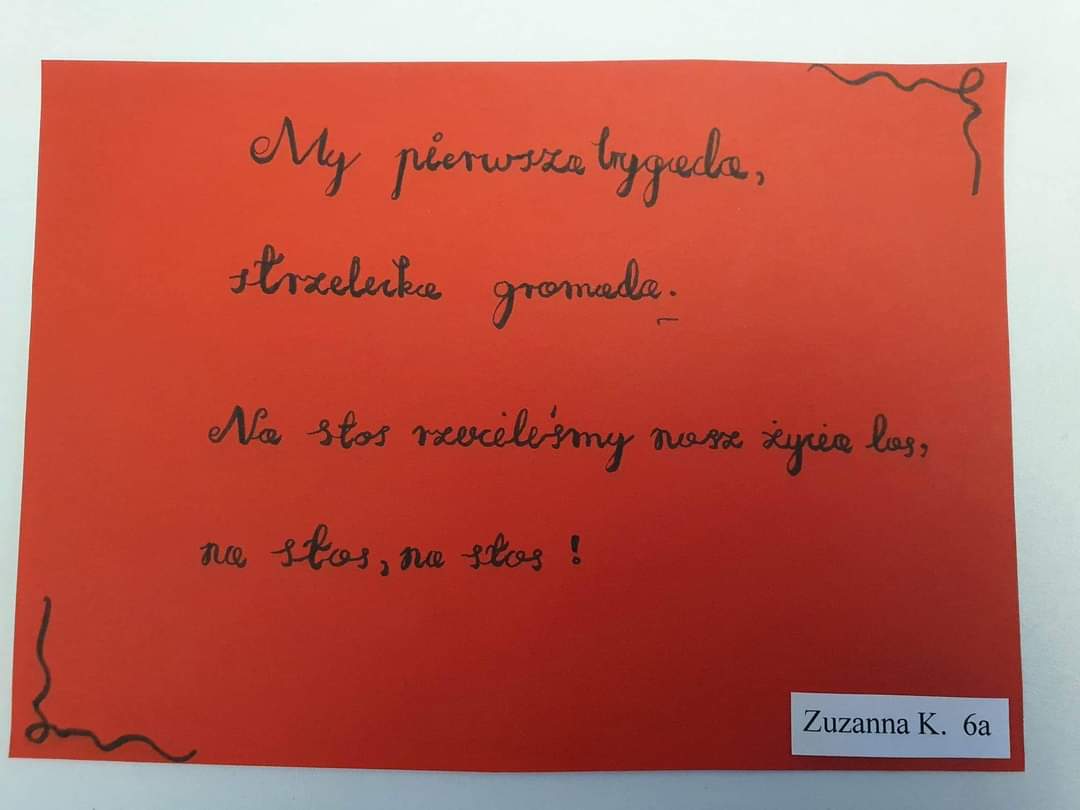 My pierwsza brygada,
strzelecka gromada.
Na stos rzuciliśmy nasz życia los,
na stos, na stos!
Zuzanna K. 6a